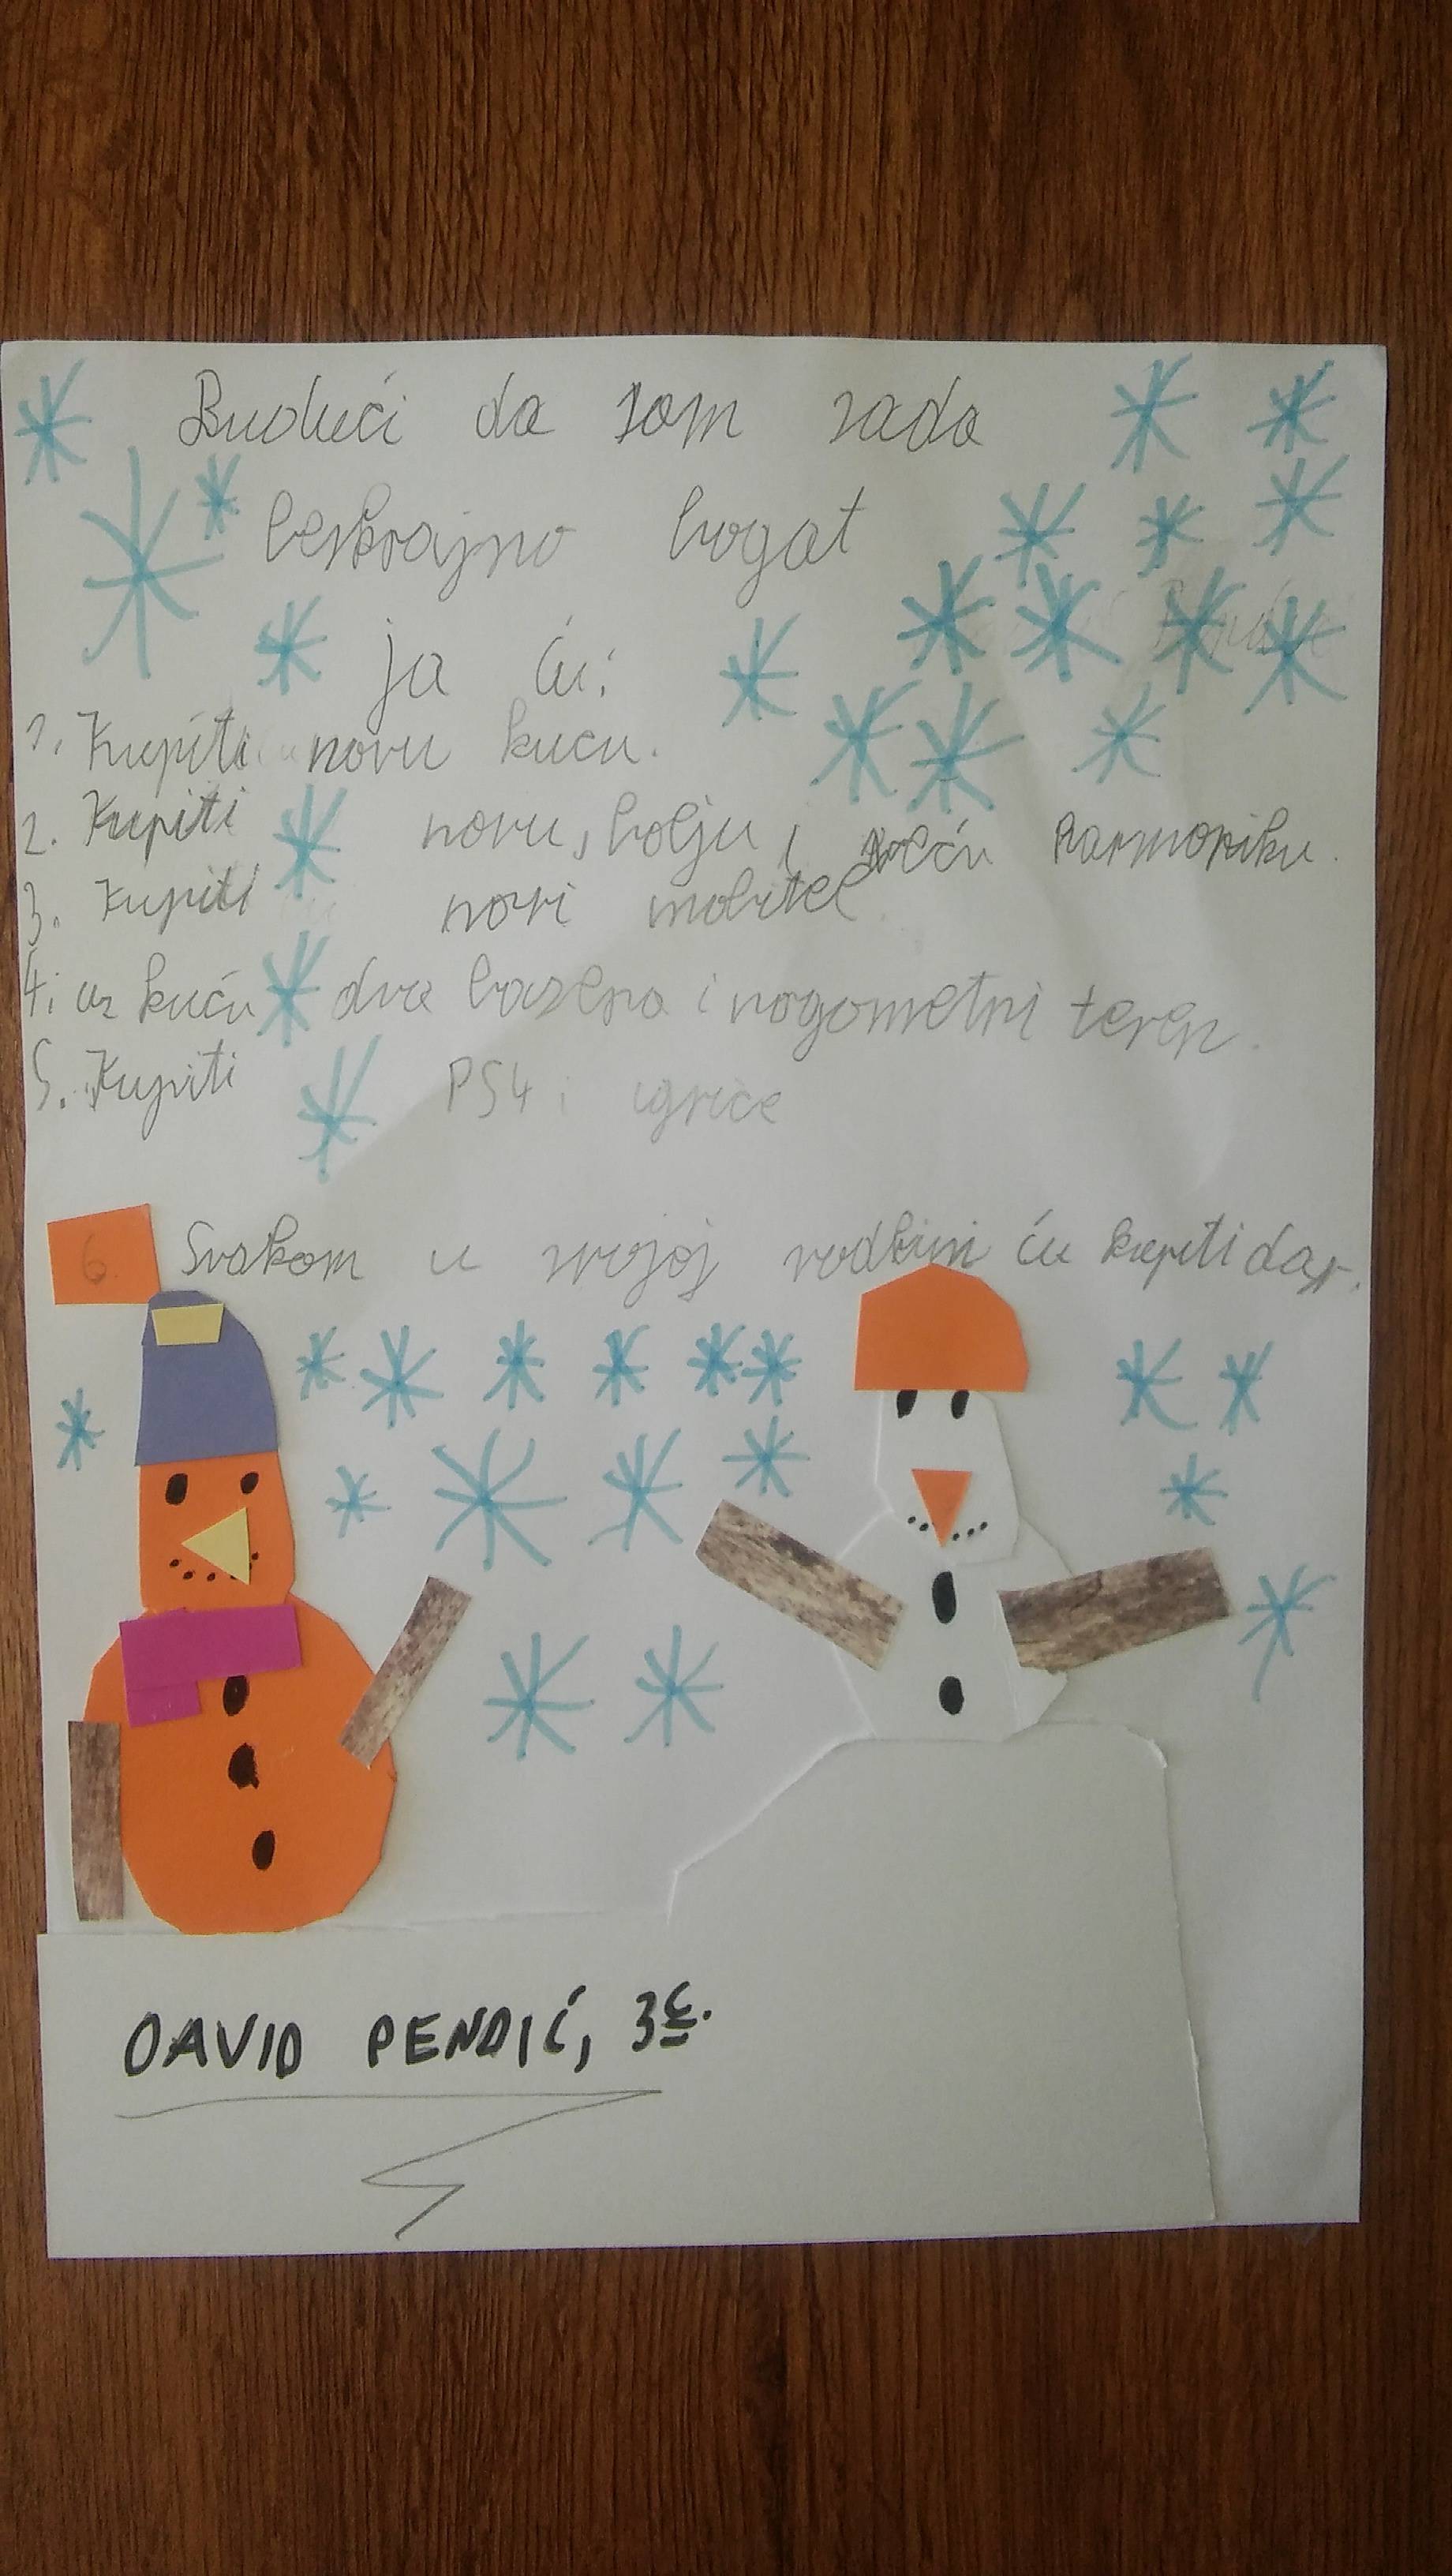 Budući da sam sada
beskrajno bogat
ja ću:
1. Kupiti novu kucu.
2. Kupiti novu, bolju i veću harmoniku.
3. Kupiti novi mobitel.
4. uz kuću dva bazena i nogometni teren.
5. Kupiti PS4 i igrice
6. Svakom u svojoj rodbini ću kupiti dar.
DAVID PENDIĆ, 3c.